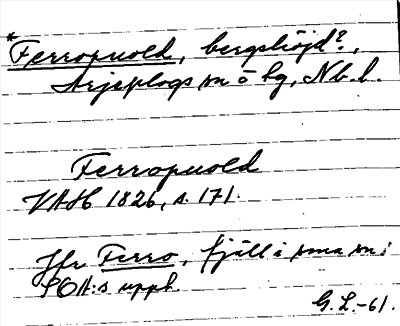 *Ferropuold, bergshöjd?,
Arjeplogs sn o lg, Nb. l.
Ferropuold
VAH 1826, s. 171.
Jfr Ferro, fjäll i sma sn i
SOA:s uppl.
G. L. -61.